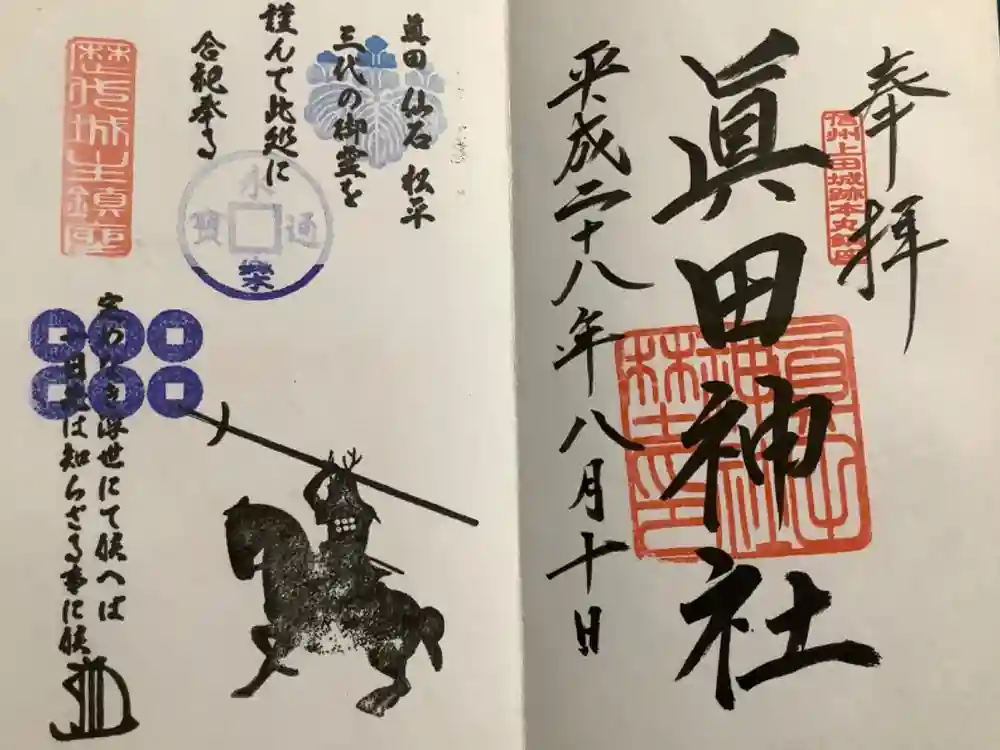 奉拝
信州上田城跡本丸鎮座
眞田神社
眞田神社印
平成二十八年八月十日
眞田 仙石 松平
三代の御霊を
謹んで此処に
合祀奉る
永樂通寳
歴代城主鎮座
定めなき浮世にて候へば
一日先は知らざる事に候